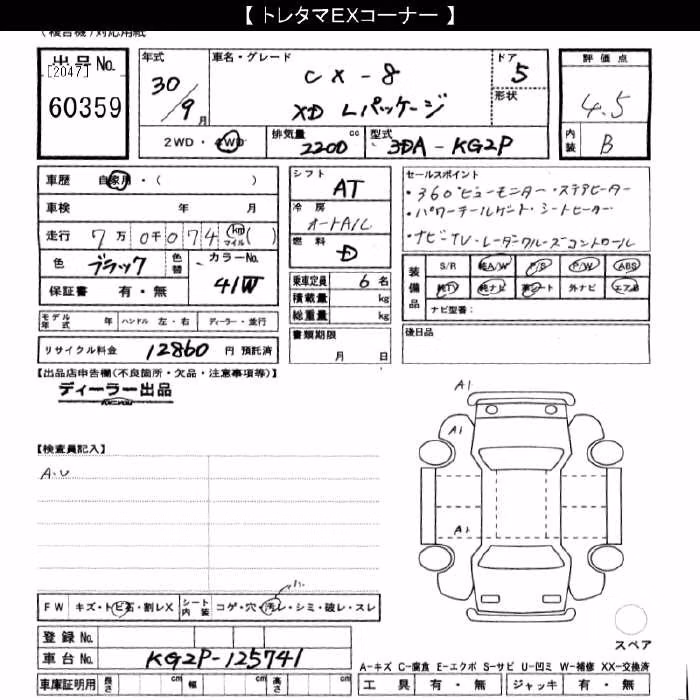 【 トレタマEXコーナー 】
(複合機)対応用紙
出品No.
[2047]
60359
年式
30/9月
車名・グレード
CX-8
XD Lパッケージ
ドア
5
形状
評価点
4.5
内装
B
2WD・4WD
排気量
2200 cc
型式
3DA-KG2P
車歴 自家用・( )
車検 年 月
走行 7万0千074 km マイル( )
色 ブラック
色替
カラーNo.
41W
保証書 有・無
シフト
AT
冷房
オートA/C
燃料
D
乗車定員 6名
積載量 kg
総重量 kg
セールスポイント
・360°ビューモニター・ステアヒーター
・パワーテールゲート・シートヒーター
・ナビ・TV・レーダークルーズコントロール
装備品
S/R 純A/W P/S P/W ABS
純TV 純ナビ 革シート 外ナビ エアB
ナビ型番:
モデル年式 年 ハンドル 左・右 ディーラー・並行
書類期限
月 日
後日品
リサイクル料金 12860 円 預託済
【出品店申告欄(不良箇所・欠品・注意事項等)】
ディーラー出品
A1
A1
A1
【検査員記入】
A・U
FW キズ・トビ石・割レX
シート内装 コゲ・穴・汚レ・シミ・破レ・スレ
登録No.
車台No. KG2P-125741
車庫証明用 長さ cm 幅 cm 高さ cm
スペア
A-キズ C-腐食 E-エクボ S-サビ U-凹ミ W-補修 XX-交換済
工具 有・無 ジャッキ 有・無